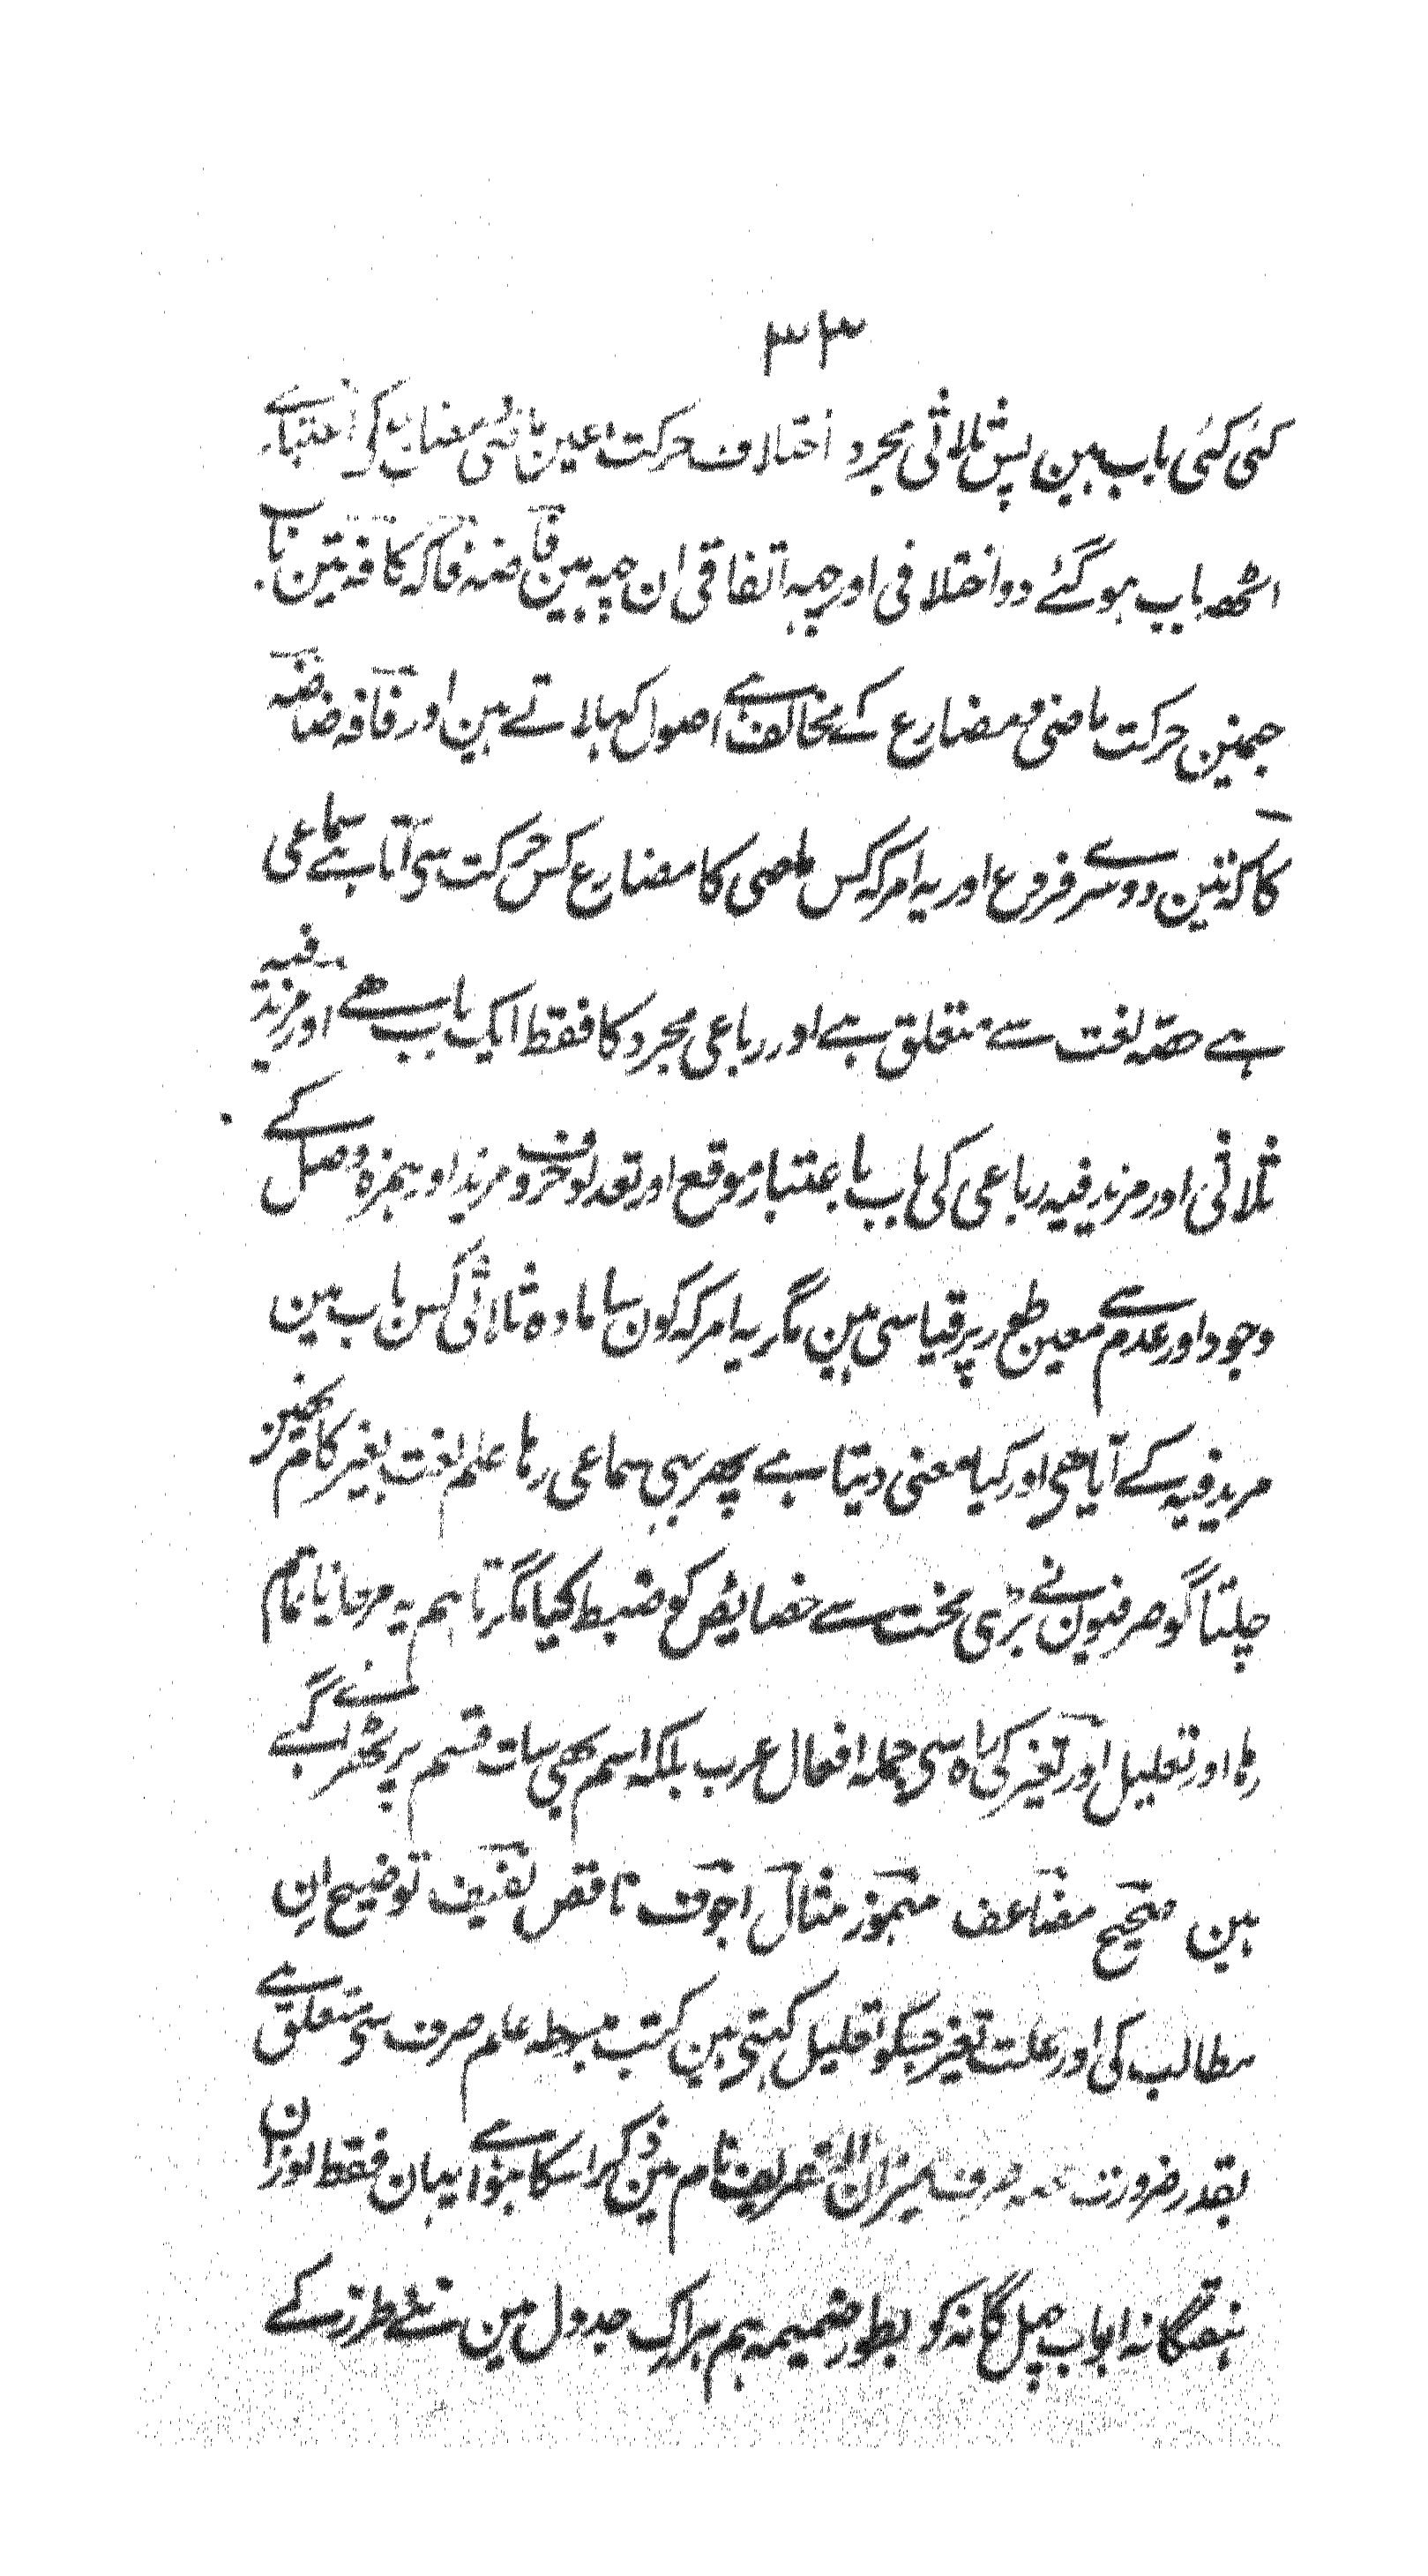 ۳۳
کئی کئی باب ہین پس ثلاثی مجرد اختلاف حرکت عین ماضی مضارع کی اعتبار سے
اٹھہ باب ہو گئے دو اختلافی اور چہہ اتفاقی ان چہہ ہین فا ضنہ فاکہ کافہ تین باب
جمنین حرکت ماضی مضارع کے مخالف ہے اصول کہلاتے ہین اور فافہ ضاضنہ
کاکہ تین دوسرے فروع اور یہ امر کہ کس ماضی کا مضارع کس حرکت سی آتا ہے سماعی
ہے حصہ لغت سے متعلق ہے اور رباعی مجرد کا فقط ایک باب ہے اور مزید فیہ
ثلاثی اور مزید فیہ رباعی کی باب باعتبار موقع اور تعداد حروف مزید اور ہمزہ وصل کے
وجود اور عدم سے معین طور پر قیاسی ہین مگر یہ امر کہ کون سا مادہ ثلاثی کس باب مین
مزید فیہ کے آیا ہی اور کیا معنی دیتا ہے پھر بہی سماعی رہا علم لغت بغیر کام نہین
چلتا گو صرفیون نے بڑی محنت سے خصایص کو ضبط کیا مگر تاہم یہ مرحلہ ناتمام
رہا اور تعلیل اور تغیر کی راہ سی جملہ افعال عرب بلکہ اسم بھی سات قسم پر ٹھرائے گئے
ہین صحیح مضاعف مہموز مثال اجوف ناقص لفیف توضیح ان
مطالب کی اور علت تغیر جسکو تعلیل کہتی ہین کتب مبسوطہ علم صرف سی متعلق ہے
بقدر ضرورت میزان التعریف نام مین ذکر اسکا ہوا ہے یہان فقط اوزان
ہفتگانہ ابواب چہل گانہ کو بطور ضمیمہ ہم ہر اک جدول مین نئے طرز کے